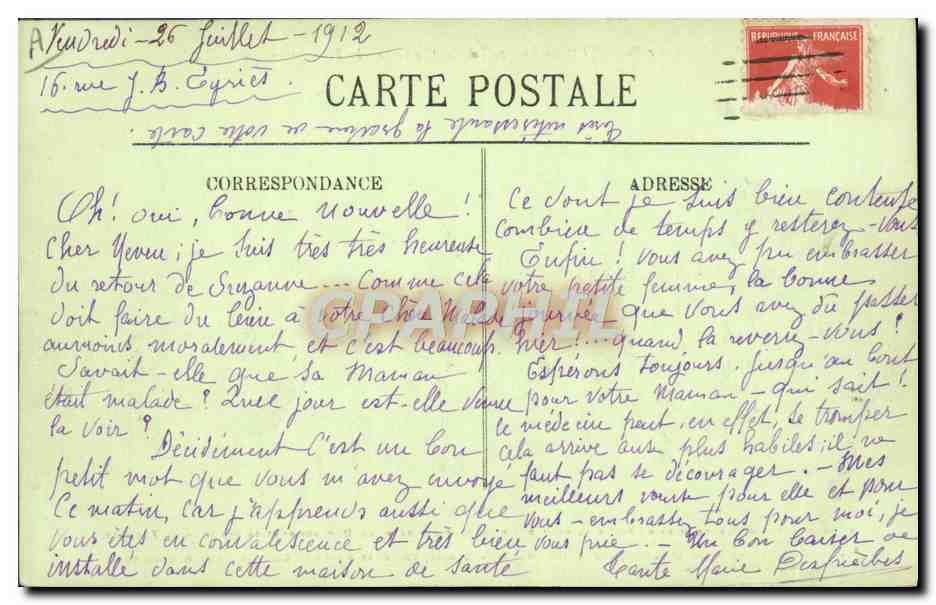 Vendredi - 26 Juillet - 1912
16. rue J. B. Eyriès.
RÉPUBLIQUE FRANÇAISE
CARTE POSTALE
Très intéressante la gravure de votre carte.
CORRESPONDANCE
Oh! oui, bonne nouvelle!
Cher Neveu; je suis très très heureuse
du retour de Suzanne... Comme cela
doit faire du bien à votre chère Malade
aumoins moralement, et c'est beaucoup.
Savait-elle que sa Maman
était malade? Quel jour est-elle venue
la voir?
Décidément c'est un bon
petit mot que vous m'avez envoyé
ce matin, car j'apprends aussi que
vous êtes en convalescence et très bien
installé dans cette maison de santé
ADRESSE
Ce dont je suis bien contente
combien de temps y resterez-vous
Enfin! vous avez pu embrasser
votre petite femme, la bonne
journée que vous avez dû passer
hier!... quand la reverrez-vous?
Espérons toujours. Jusqu'au bout
pour votre Maman - qui sait!
le médecin peut, en effet, se tromper
cela arrive aux plus habiles; il ne
faut pas se décourager. - Mes
meilleurs vœux pour elle et pour
vous - embrassez tous pour moi, je
vous prie. - Un bon baiser de
Tante Marie
CPAPHIL